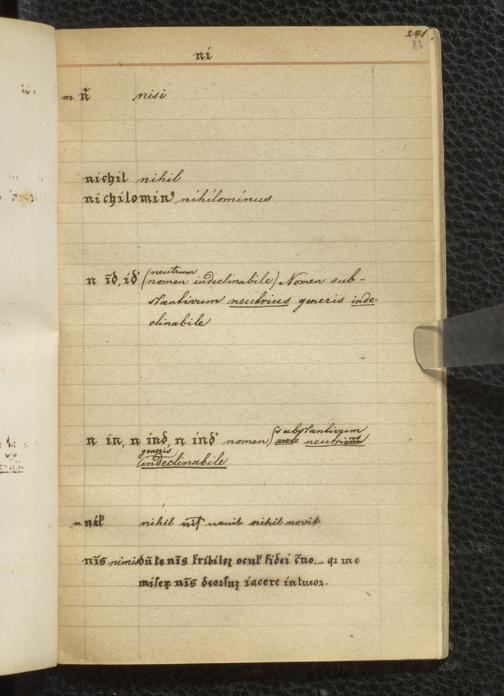 241
113
ni
m. n̄ nisi
nichil nihil
nichilomin⁹ nihilominus
n īd, id' (neutrum
nomen indeclinabile) Nomen sub-
stantivum neutrius generis inde-
clinabile
n in, n ind, n ind' nomen) substantivum
neutrius
generis
indeclinabile
m nil' nihil novit nihil novit
nīs nimis te nīs ocul' fidei
nīs iacere intueor.